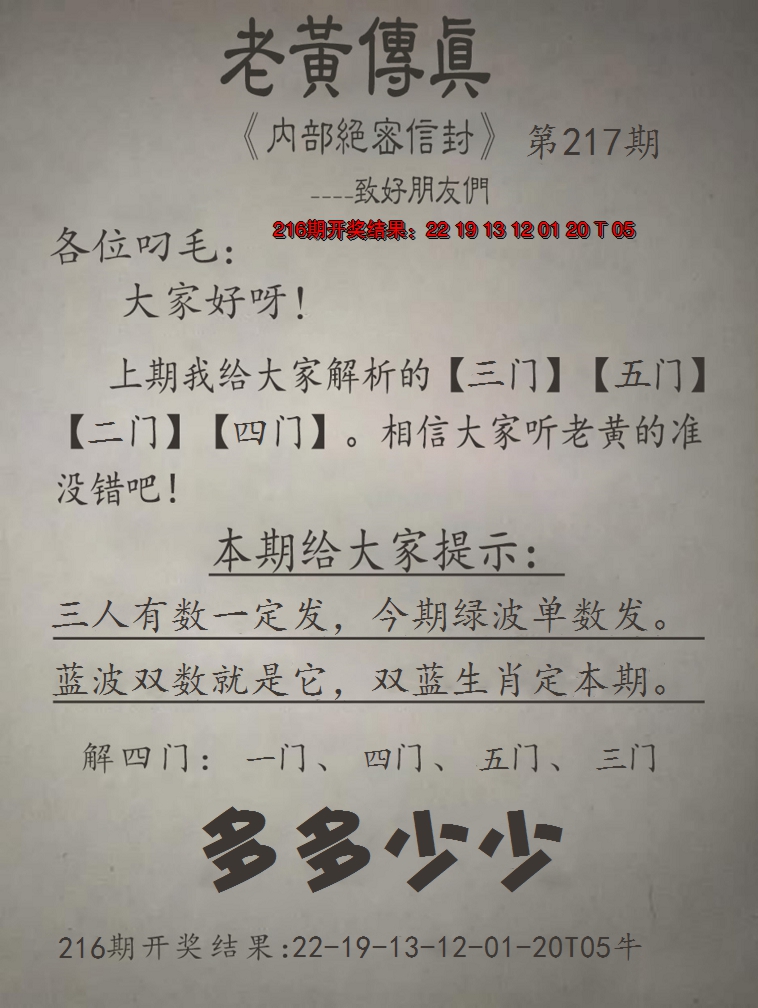 老黃傳真
《内部絕密信封》 第217期
----致好朋友們
216期开奖结果：22 19 13 12 01 20 T 05
各位叼毛：
大家好呀！
上期我给大家解析的【三门】【五门】
【二门】【四门】。相信大家听老黄的准
没错吧！
本期给大家提示：
三人有数一定发，今期绿波单数发。
蓝波双数就是它，双蓝生肖定本期。
解四门：一门、四门、五门、三门
多多少少
216期开奖结果:22-19-13-12-01-20T05牛